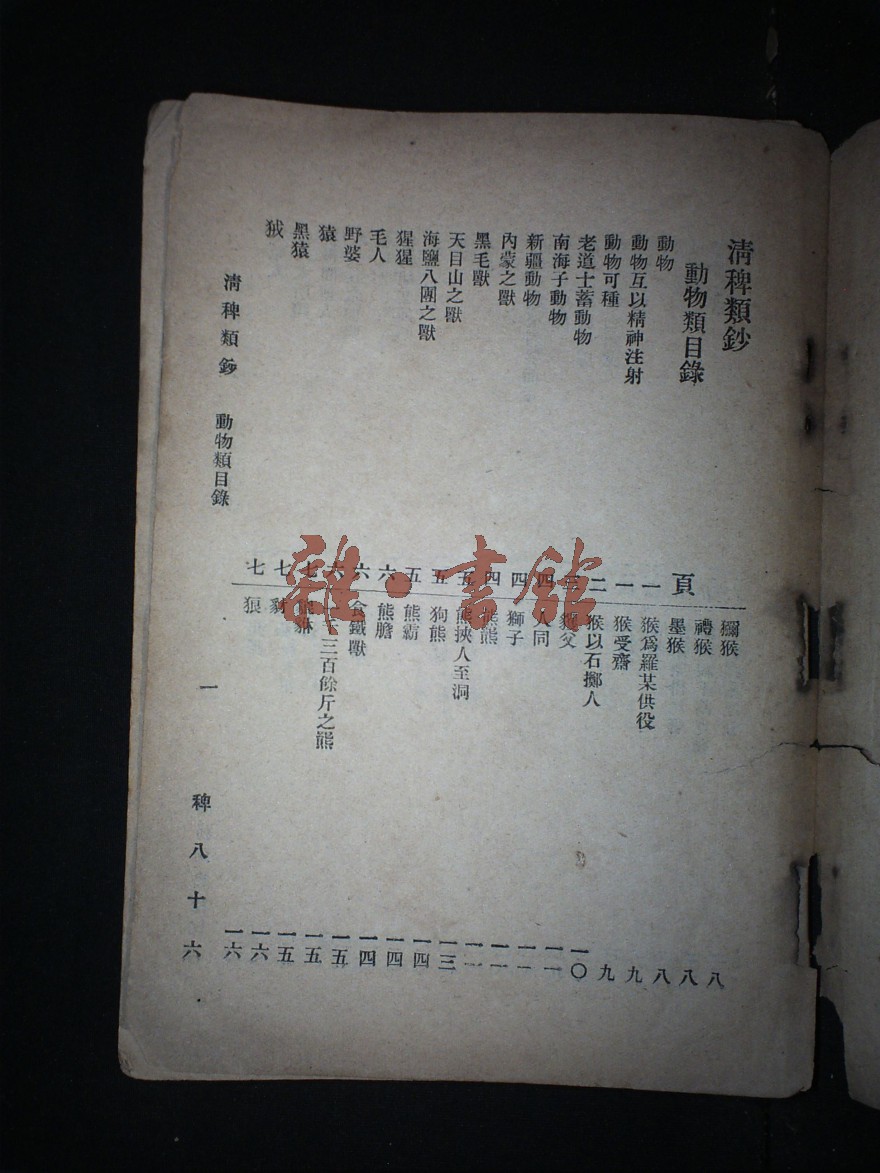 清稗類鈔
動物類目錄
頁
動物 一
動物互以精神注射 一
動物可種 二
老道士蓄動物
南海子動物 四
新疆動物 四
內蒙之獸 四
黑毛獸 五
天目山之獸 五
海鹽八團之獸 五
猩猩 六
毛人 六
野婆 六
猿 七
黑猿 七
狨 七
獼猴 八
禮猴 八
墨猴 八
猴爲羅某供役 九
猴受齋 九
猴以石擲人 一〇
父 一一
人同 一一
獅子 一一
熊
熊挾人至洞 一三
狗熊 一四
熊霸 一四
熊膽 一四
食鐵獸 一五
千三百餘斤之熊 一五
一五
豺 一六
狼 一六
清稗類鈔 動物類目錄 一 稗八十六
雜·書館